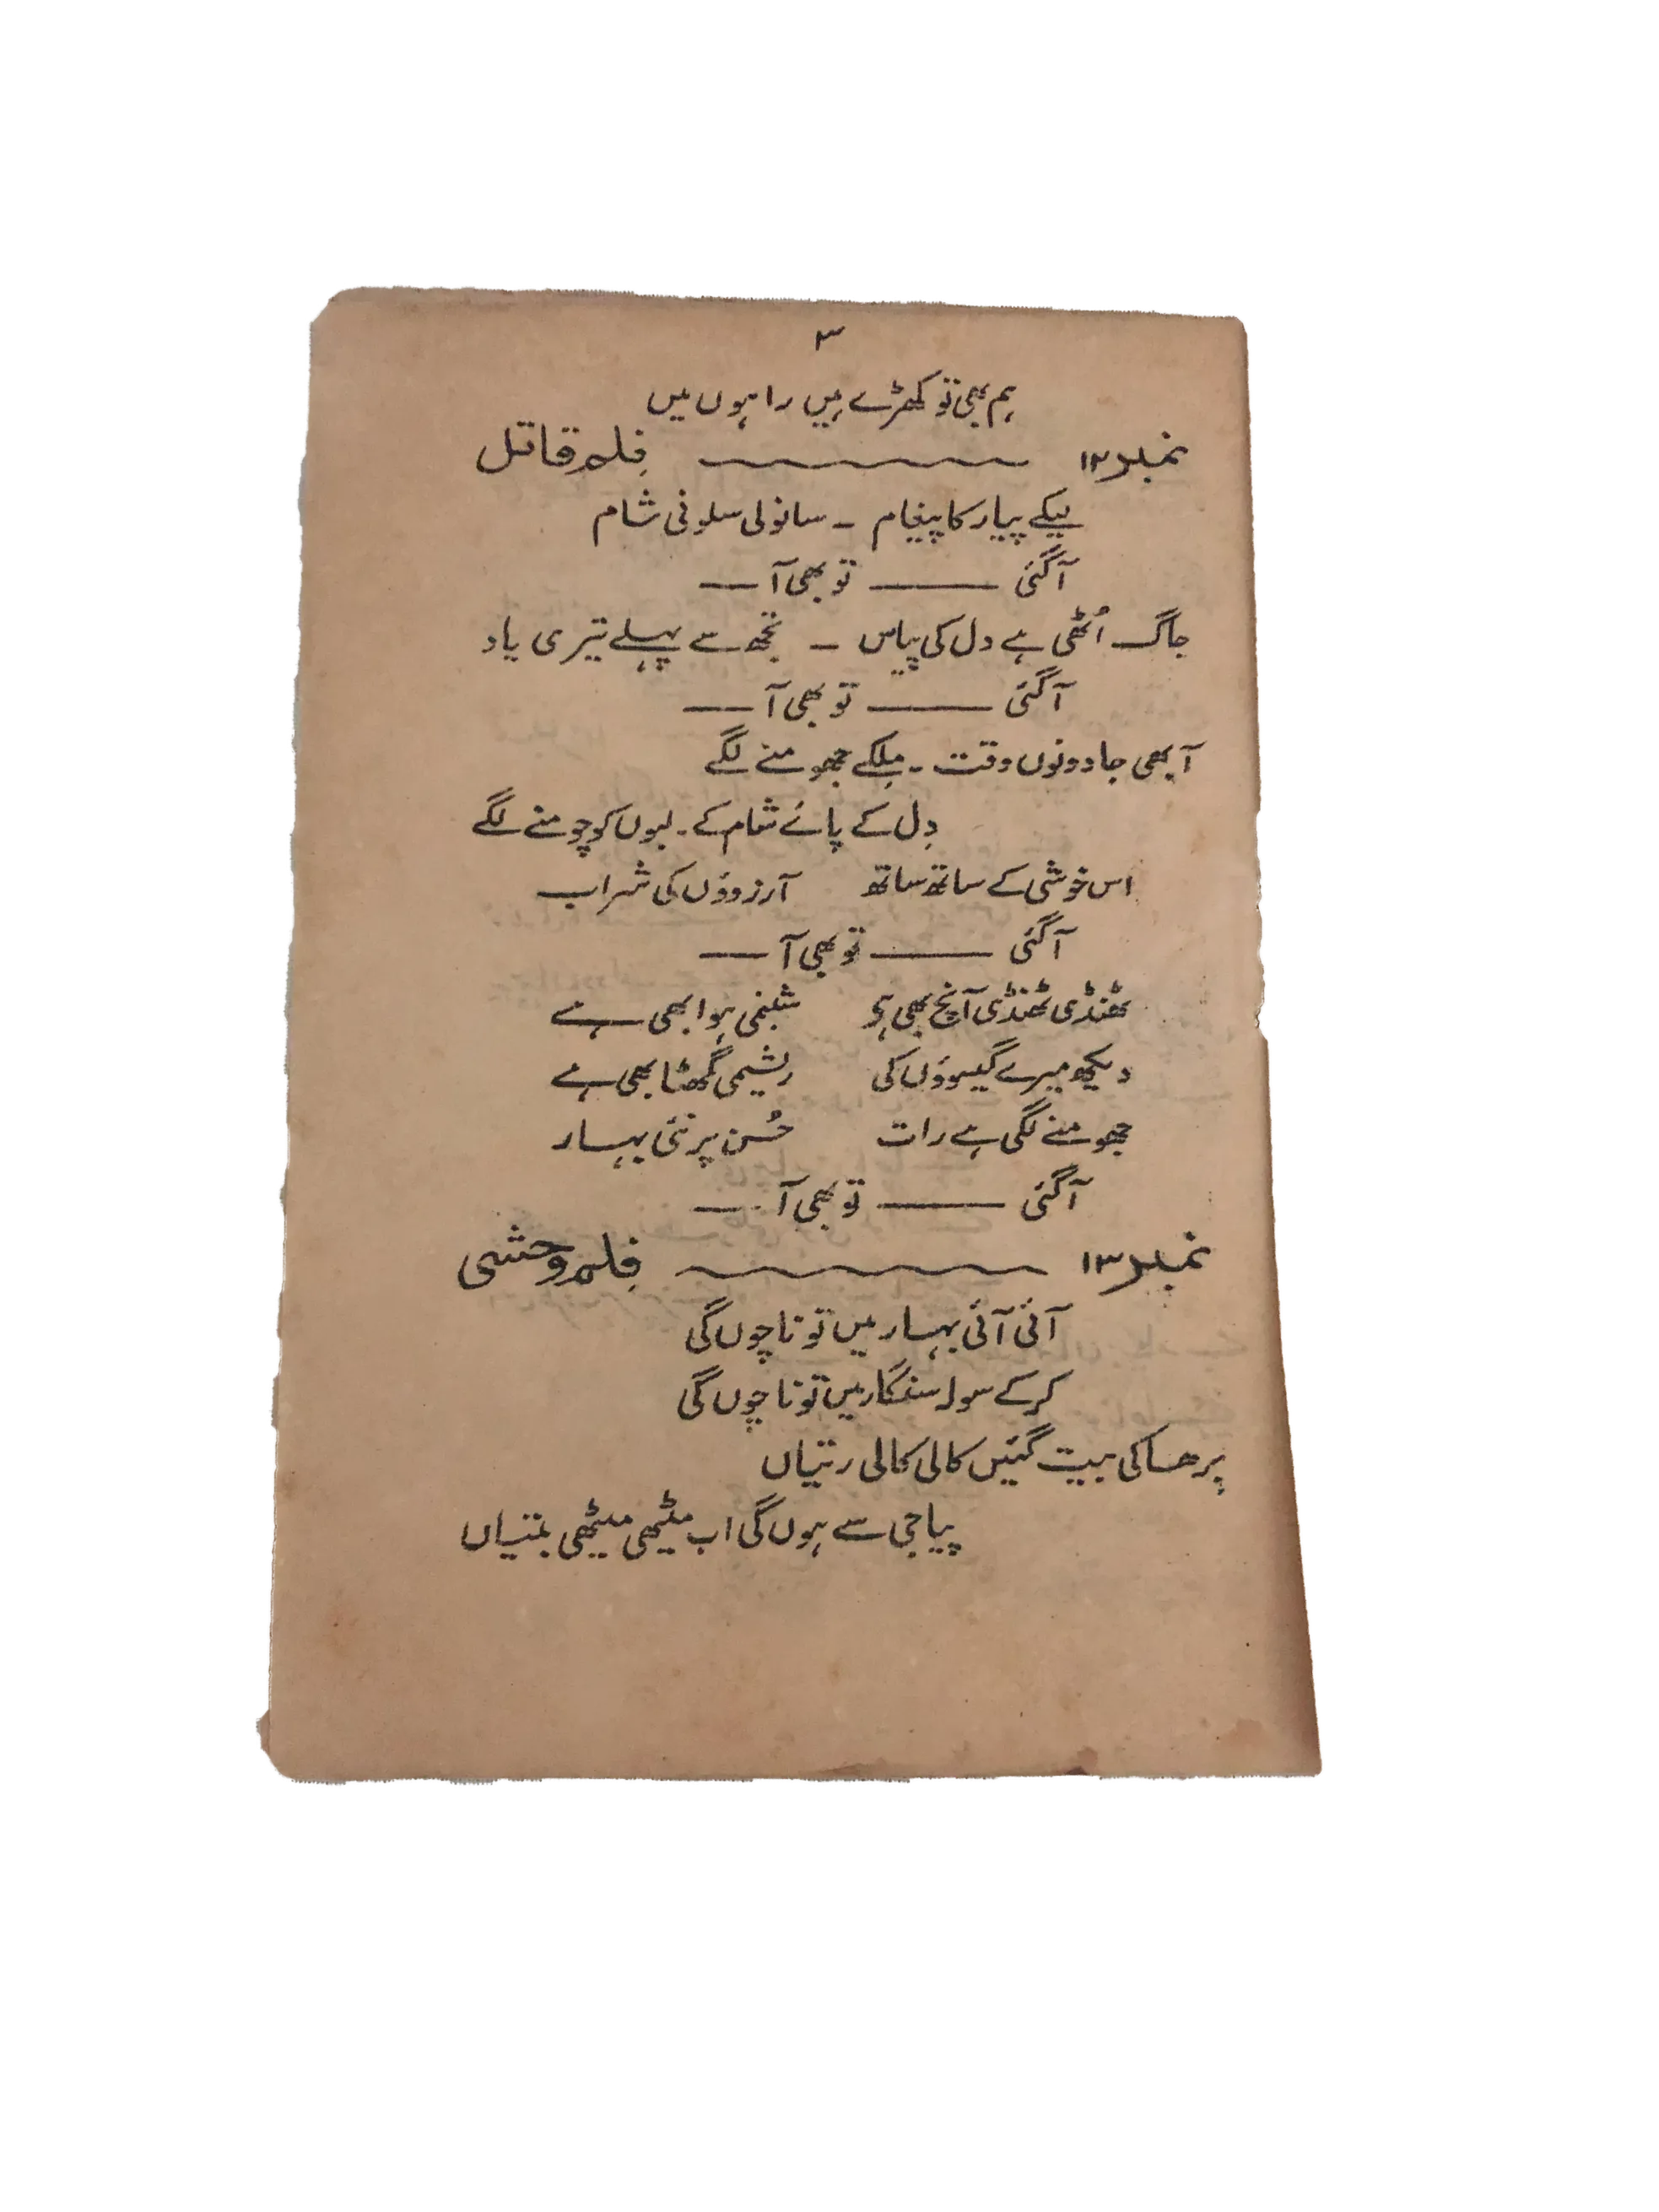 ۳
ہم بھی تو کھڑے ہیں راہوں میں
نمبر ۱۲ فلم قاتل
لیکے پیار کا پیغام ۔ سانولی سلونی شام
آگئی ——— تو بھی آ ——
جاگ اُٹھی ہے دل کی پیاس ۔ تجھ سے پہلے تیری یاد
آگئی ——— تو بھی آ ——
آ بھی جا دونوں وقت ۔ مِلکے جھومنے لگے
دِل کے پائے شام کے ۔ لبوں کو چومنے لگے
اس خوشی کے ساتھ ساتھ آرزوؤں کی شراب
آگئی ——— تو بھی آ ——
ٹھنڈی ٹھنڈی آنچ بھی ہو شبنمی ہوا بھی ہے
دیکھو میرے گیسوؤں کی ریشمی گھٹا بھی ہے
جھومنے لگی ہے رات حُسن پر نئی بہار
آگئی ——— تو بھی آ ——
نمبر ۱۳ فلم وحشی
آئی آئی بہار میں تو ناچوں گی
کر کے سولہ سنگار میں تو ناچوں گی
برھا کی بیت گئیں کالی کالی رتیاں
پیا جی سے ہوں گی اب میٹھی میٹھی بتیاں